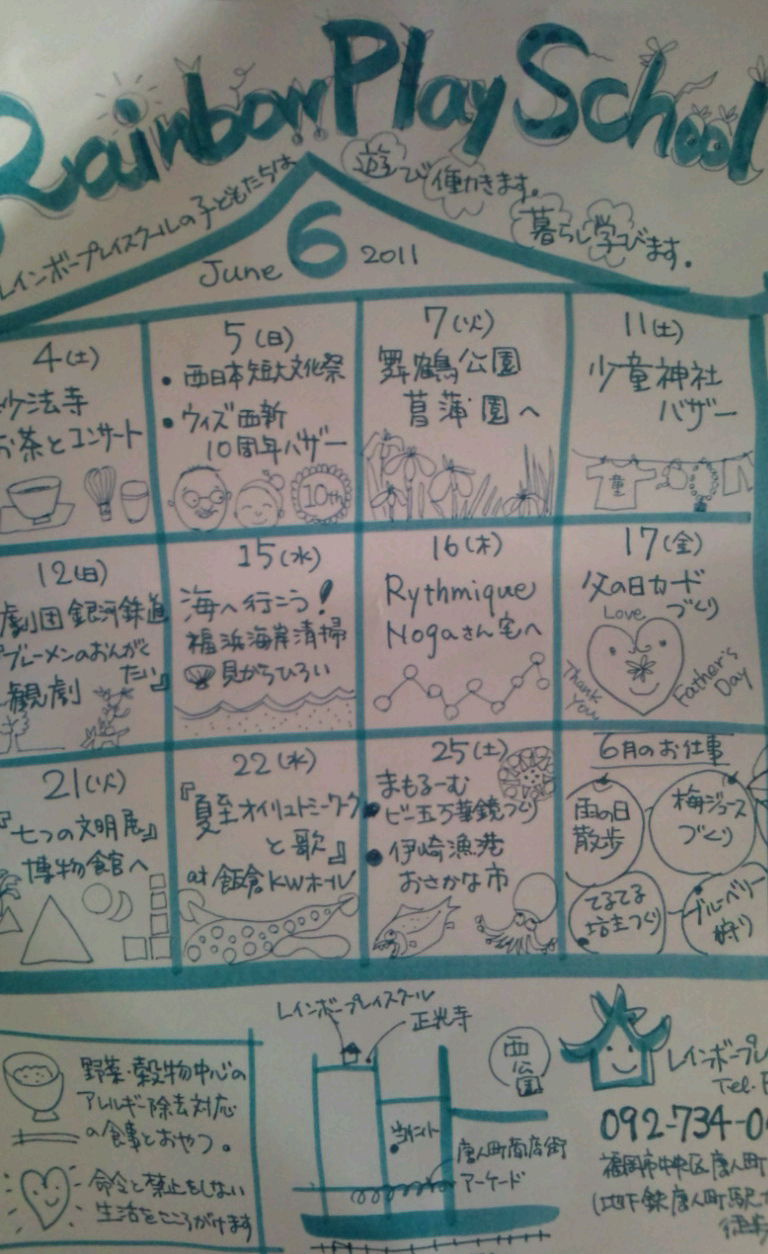 Rainbow Play School
レインボープレイスクールの子どもたちは
遊び働かきます。
暮らし学びます。
June 6 2011
4(土)
妙法寺
お茶とコンサート
5(日)
・西日本短大文化祭
・ウィズ西新
10周年バザー
10th
7(火)
舞鶴公園
菖蒲園へ
11(土)
少童神社
バザー
童
12(日)
劇団銀河鉄道
『ブレーメンのおんがく
たい』
観劇
15(水)
海へ行こう!
福浜海岸清掃
貝がらひろい
16(木)
Rythmique
Nogaさん宅へ
17(金)
父の日カード
づくり
Love
Thank You
Father's Day
21(火)
『七つの文明展』
博物館へ
22(水)
『夏至オイリュトミーワーク
と歌』
at 飯倉KWホール
25(土)
まもるーむ
・ビー玉万華鏡づくり
・伊崎漁港
おさかな市
6月のお仕事
雨の日
散歩
梅ジュース
づくり
てるてる
坊主づくり
ブルーベリー
狩り
野菜・穀物中心の
アレルギー除去対応
の食事とおやつ。
命令と禁止をしない
生活をこころがけます
レインボープレイスクール
正光寺
西公園
唐人町商店街
アーケード
レインボープレ
Tel.
092-734-0
福岡市中央区唐人町
(地下鉄唐人町駅
徒歩